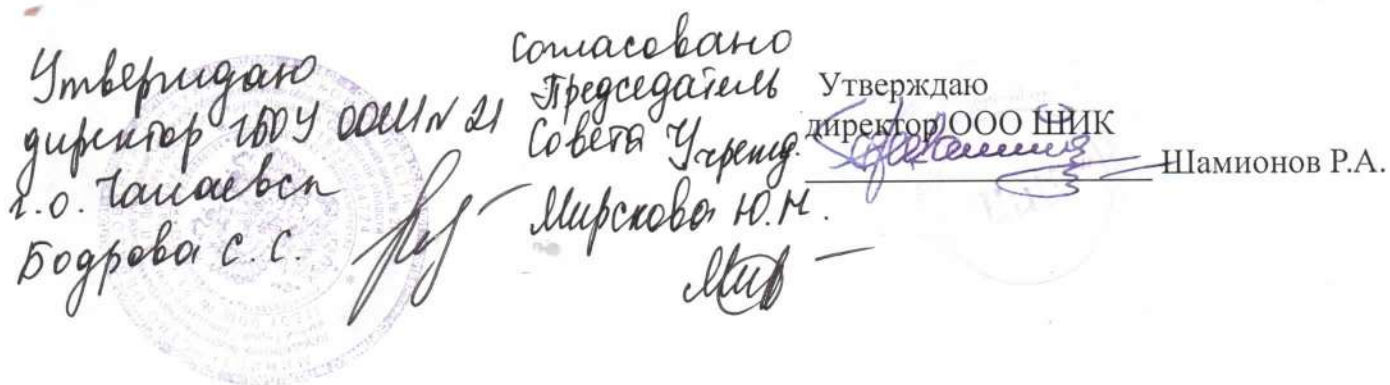 Утверждаю
директор ГБОУ ООШ № 21
г.о. Чапаевск
Бодрова С. С.
Согласовано
Председатель
Совета Учрежд.
Мирскова Ю.Н.
Утверждаю
директор ООО ШИК
Шамионов Р.А.